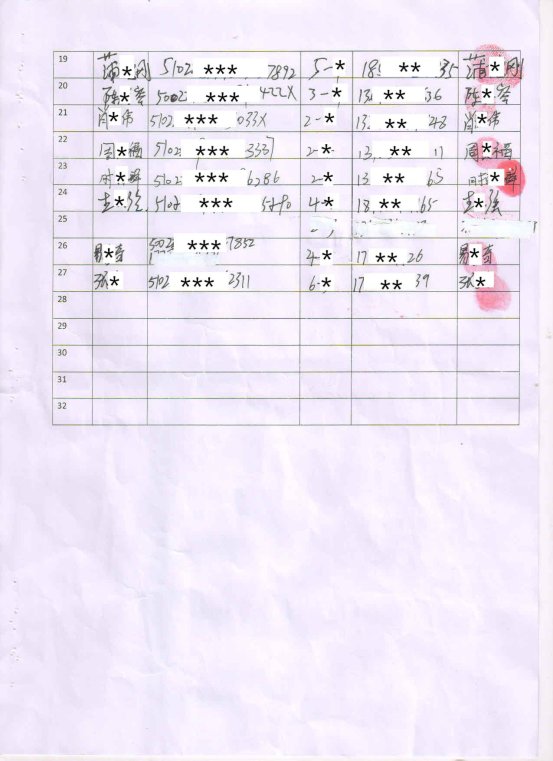 19 蒲*刚 5102 *** 7892 5-* 18 ** 35 蒲*刚
20 陈* 5002 *** 422X 3-* 13 ** 36 陈*
21 肖*伟 5102 *** 033X 2-* 13 ** 48 肖*伟
22 周*福 5102 *** 3337 2-* 13 ** 11 周*福
23 5102 *** 6286 2-* 13 ** 63
24 * 5102 *** 4-* 18 ** 65 *
25
26 易*奇 5002 *** 7852 4-* 17 ** 26 易*奇
27 张* 5102 *** 2311 6-* 17 ** 39 张*
28
29
30
31
32